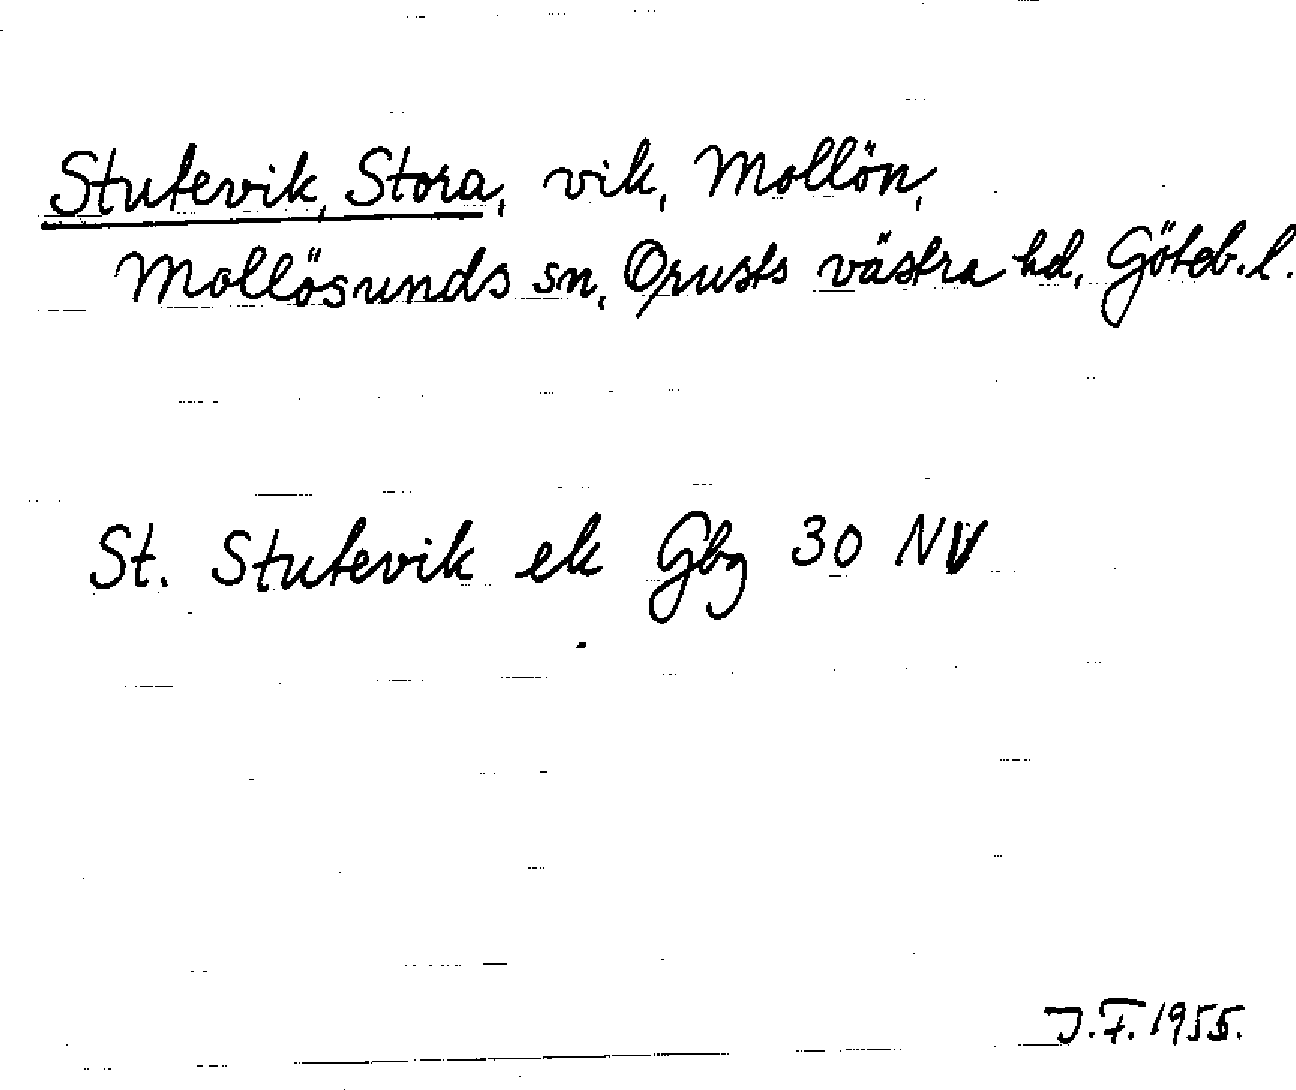 Stutevik, Stora, vik, Mollön,
Mollösunds sn, Orusts västra hd, Göteb. l.
St. Stutevik ek Gbg 30 NV
J.F. 1955.